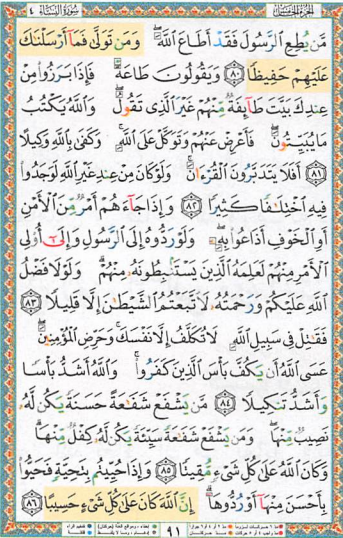 الجزء الخامس سورة النساء ٤
مَّن يُطِعِ الرَّسُولَ فَقَدْ أَطَاعَ اللَّهَ ۖ وَمَن تَوَلَّىٰ فَمَا أَرْسَلْنَاكَ
عَلَيْهِمْ حَفِيظًا ٨٠ وَيَقُولُونَ طَاعَةٌ فَإِذَا بَرَزُوا مِنْ
عِندِكَ بَيَّتَ طَائِفَةٌ مِّنْهُمْ غَيْرَ الَّذِي تَقُولُ ۖ وَاللَّهُ يَكْتُبُ
مَا يُبَيِّتُونَ ۖ فَأَعْرِضْ عَنْهُمْ وَتَوَكَّلْ عَلَى اللَّهِ ۚ وَكَفَىٰ بِاللَّهِ وَكِيلًا
٨١ أَفَلَا يَتَدَبَّرُونَ الْقُرْآنَ ۚ وَلَوْ كَانَ مِنْ عِندِ غَيْرِ اللَّهِ لَوَجَدُوا
فِيهِ اخْتِلَافًا كَثِيرًا ٨٢ وَإِذَا جَاءَهُمْ أَمْرٌ مِّنَ الْأَمْنِ
أَوِ الْخَوْفِ أَذَاعُوا بِهِ ۖ وَلَوْ رَدُّوهُ إِلَى الرَّسُولِ وَإِلَىٰ أُولِي
الْأَمْرِ مِنْهُمْ لَعَلِمَهُ الَّذِينَ يَسْتَنبِطُونَهُ مِنْهُمْ ۗ وَلَوْلَا فَضْلُ
اللَّهِ عَلَيْكُمْ وَرَحْمَتُهُ لَاتَّبَعْتُمُ الشَّيْطَانَ إِلَّا قَلِيلًا ٨٣
فَقَاتِلْ فِي سَبِيلِ اللَّهِ لَا تُكَلَّفُ إِلَّا نَفْسَكَ ۚ وَحَرِّضِ الْمُؤْمِنِينَ ۖ
عَسَى اللَّهُ أَن يَكُفَّ بَأْسَ الَّذِينَ كَفَرُوا ۚ وَاللَّهُ أَشَدُّ بَأْسًا
وَأَشَدُّ تَنكِيلًا ٨٤ مَّن يَشْفَعْ شَفَاعَةً حَسَنَةً يَكُن لَّهُ
نَصِيبٌ مِّنْهَا ۖ وَمَن يَشْفَعْ شَفَاعَةً سَيِّئَةً يَكُن لَّهُ كِفْلٌ مِّنْهَا ۗ
وَكَانَ اللَّهُ عَلَىٰ كُلِّ شَيْءٍ مُّقِيتًا ٨٥ وَإِذَا حُيِّيتُم بِتَحِيَّةٍ فَحَيُّوا
بِأَحْسَنَ مِنْهَا أَوْ رُدُّوهَا ۗ إِنَّ اللَّهَ كَانَ عَلَىٰ كُلِّ شَيْءٍ حَسِيبًا ٨٦
٩١